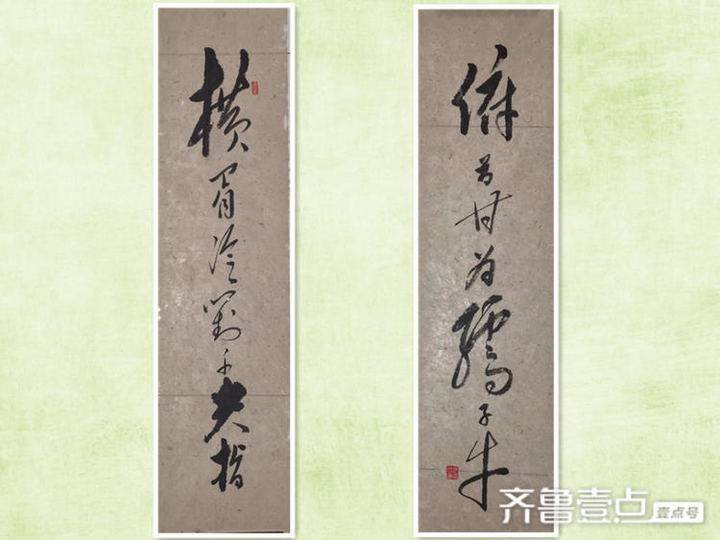 横眉冷对千夫指
俯首甘为孺子牛
齐鲁壹点
壹点号